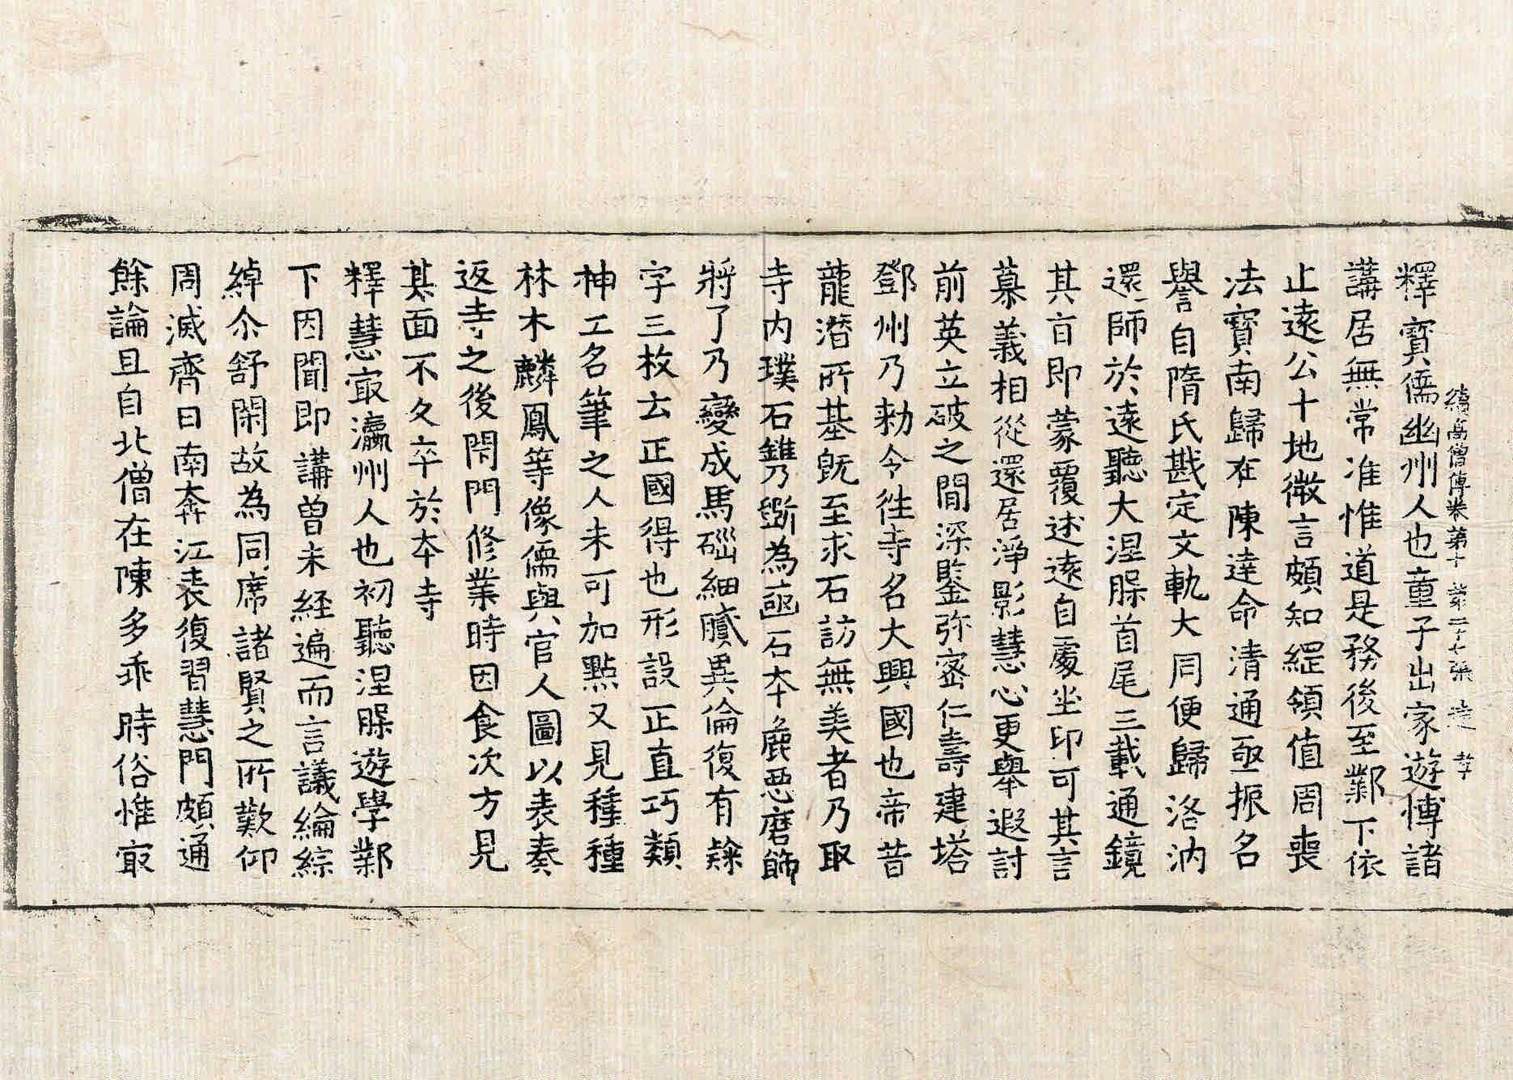 續高僧傳卷第十 第二十七張 達 孝
釋寶儒幽州人也童子出家遊博諸
講居無常准惟道是務後至鄴下依
止遠公十地微言頗知綱領值周喪
法寶南歸在陳達命清通亟振名
譽自隋氏戡定文軌大同便歸洛汭
還師於遠聽大涅槃首尾三載通鏡
其旨即蒙覆述遠自處坐印可其言
慕義相從還居淨影慧心更舉遐討
前英立破之間深鑒弥密仁壽建塔
鄧州乃勑令往寺名大興國也帝昔
龍潛所基既至求石訪無美者乃取
寺内璞石鐫斲為函石本麁惡磨飾
將了乃變成馬碯細膩異倫復有隸
字三枚云正國得也形設正直巧類
神工名筆之人未可加點又見種種
林木麟鳳等像儒與官人圖以表奏
返寺之後閇門修業時因食次方見
其面不久卒於本寺
釋慧㝡瀛州人也初聽涅槃遊學鄴
下因聞即講曾未經遍而言議綸綜
綽尒舒閑故為同席諸賢之所歎仰
周滅齊日南奔江表復習慧門頗通
餘論且自北僧在陳多乖時俗惟㝡